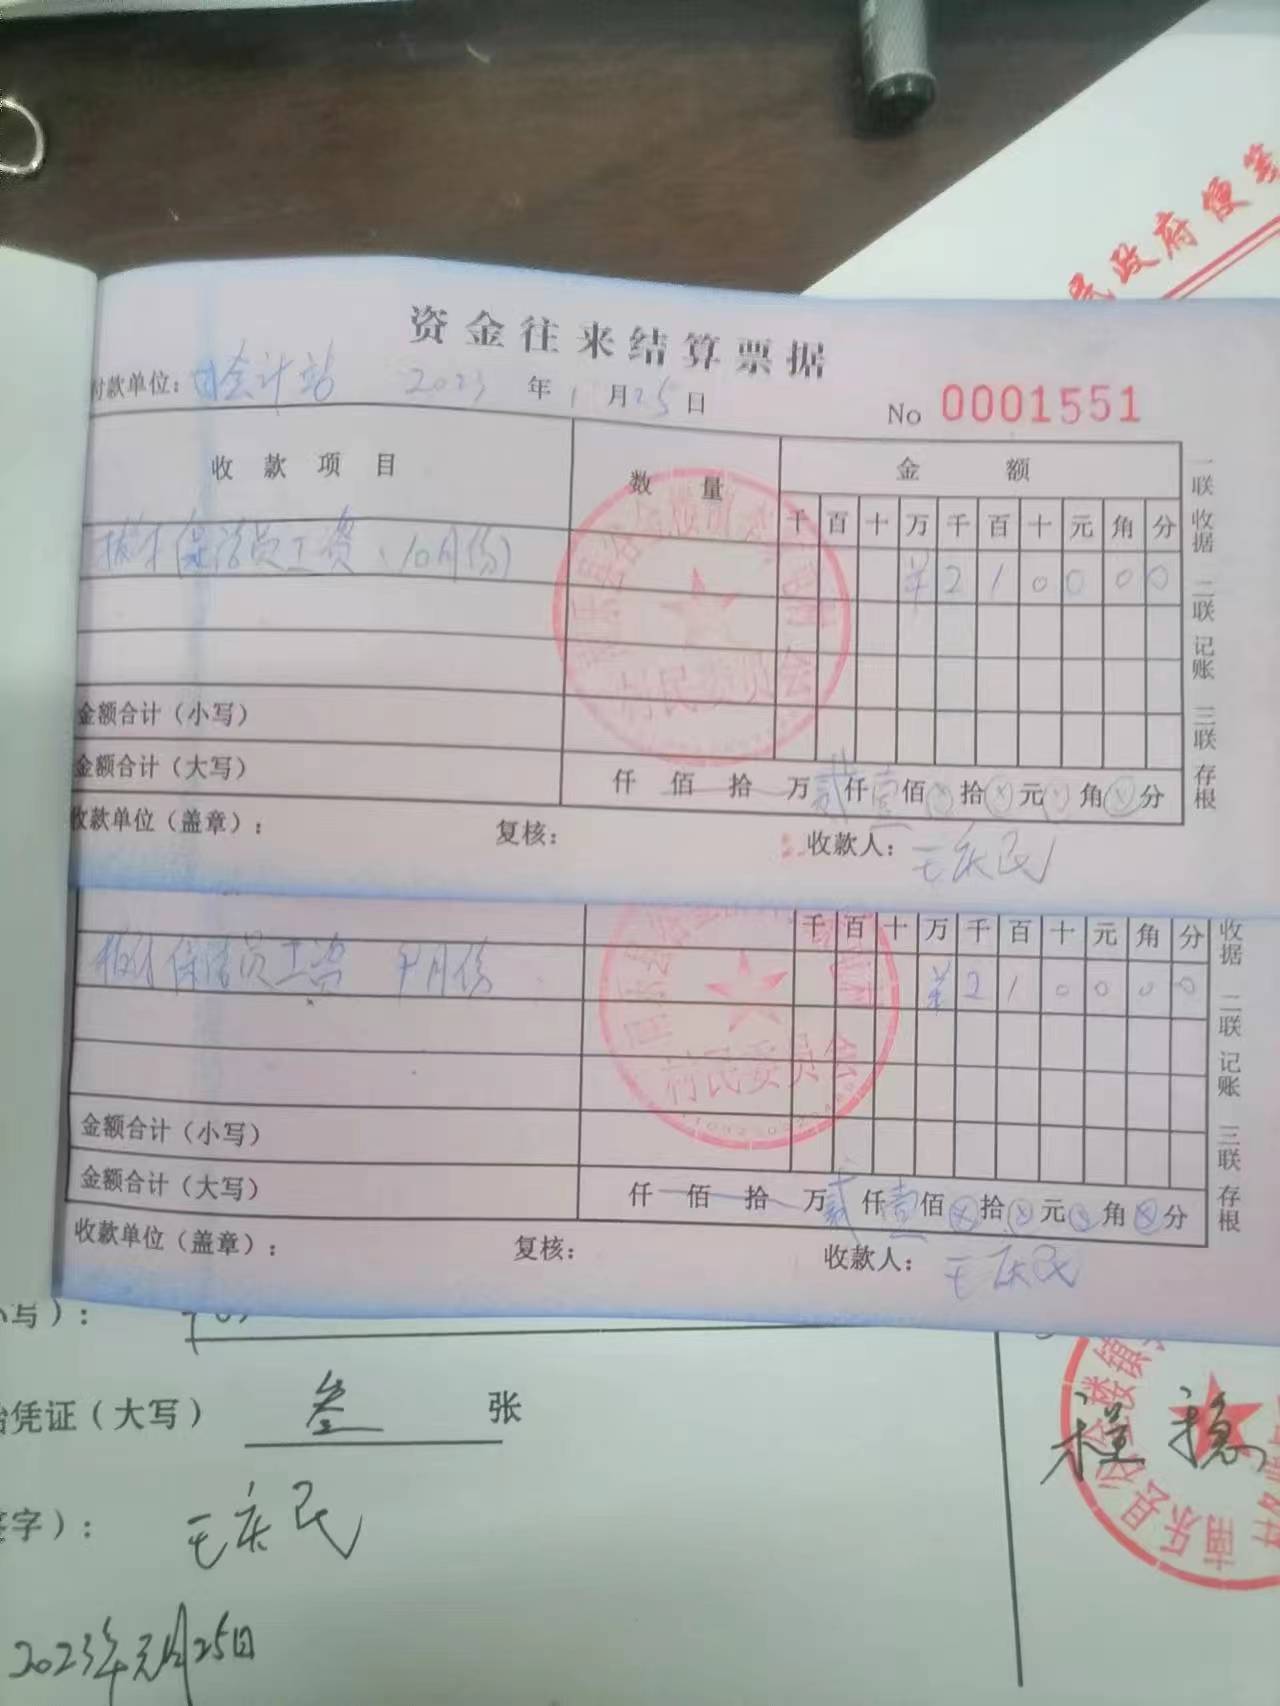 民政府便笺
资金往来结算票据
付款单位: 会计站 2023 年 1 月 25 日
No 0001551
收款项目 数量 金额
千 百 十 万 千 百 十 元 角 分
拨付保洁员工资(10月份) ¥ 2 1 0 0 0 0
金额合计(小写)
金额合计(大写) 仟 佰 拾 万 贰 仟 壹 佰 ⊗ 拾 ⊗ 元 ⊗ 角 ⊗ 分
收款单位(盖章): 复核: 收款人: 王庆民
一联收据 二联记账 三联存根
村民委员会
千 百 十 万 千 百 十 元 角 分
拨付保洁员工资 月份 ¥ 2 1 0 0 0 0
金额合计(小写)
金额合计(大写) 仟 佰 拾 万 贰 仟 壹 佰 ⊗ 拾 ⊗ 元 ⊗ 角 ⊗ 分
收款单位(盖章): 复核: 收款人: 王庆民
收据 二联记账 三联存根
村民委员会
小写):
凭证(大写) 叁 张
程稳
南乐县谷金楼镇
字): 王庆民
2023年元月25日